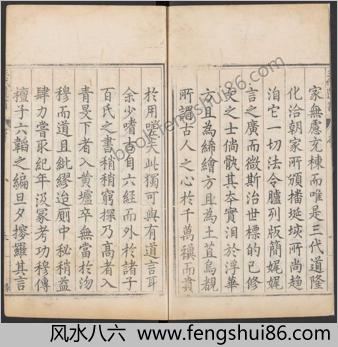 家無慮充棟而唯是三代道隆
化洽朝家所頒播埏垓所尚趋
洎它一切法令臚列版簡娓娓
言之廣而微斯治世標的已修
史之士倘飫其夲實洎於浮華
方且為締繪方且為土苴烏覩
所謂古人之心於千萬禩而貫
於用嗟矣此獨可與有道言耳
余少嗜古自六經而外於諸子
百氏之書稍稍窮探乃高者入
青旻下者入黄壚卒無當於沕
穆而道且紕繆迨厠中秘稍益
肆力嘗取紀年汲冡考功穆傳
檀子六韜之編旦夕摉羅其言
bookinlife86.com
风水八六 www.fengshui86.com